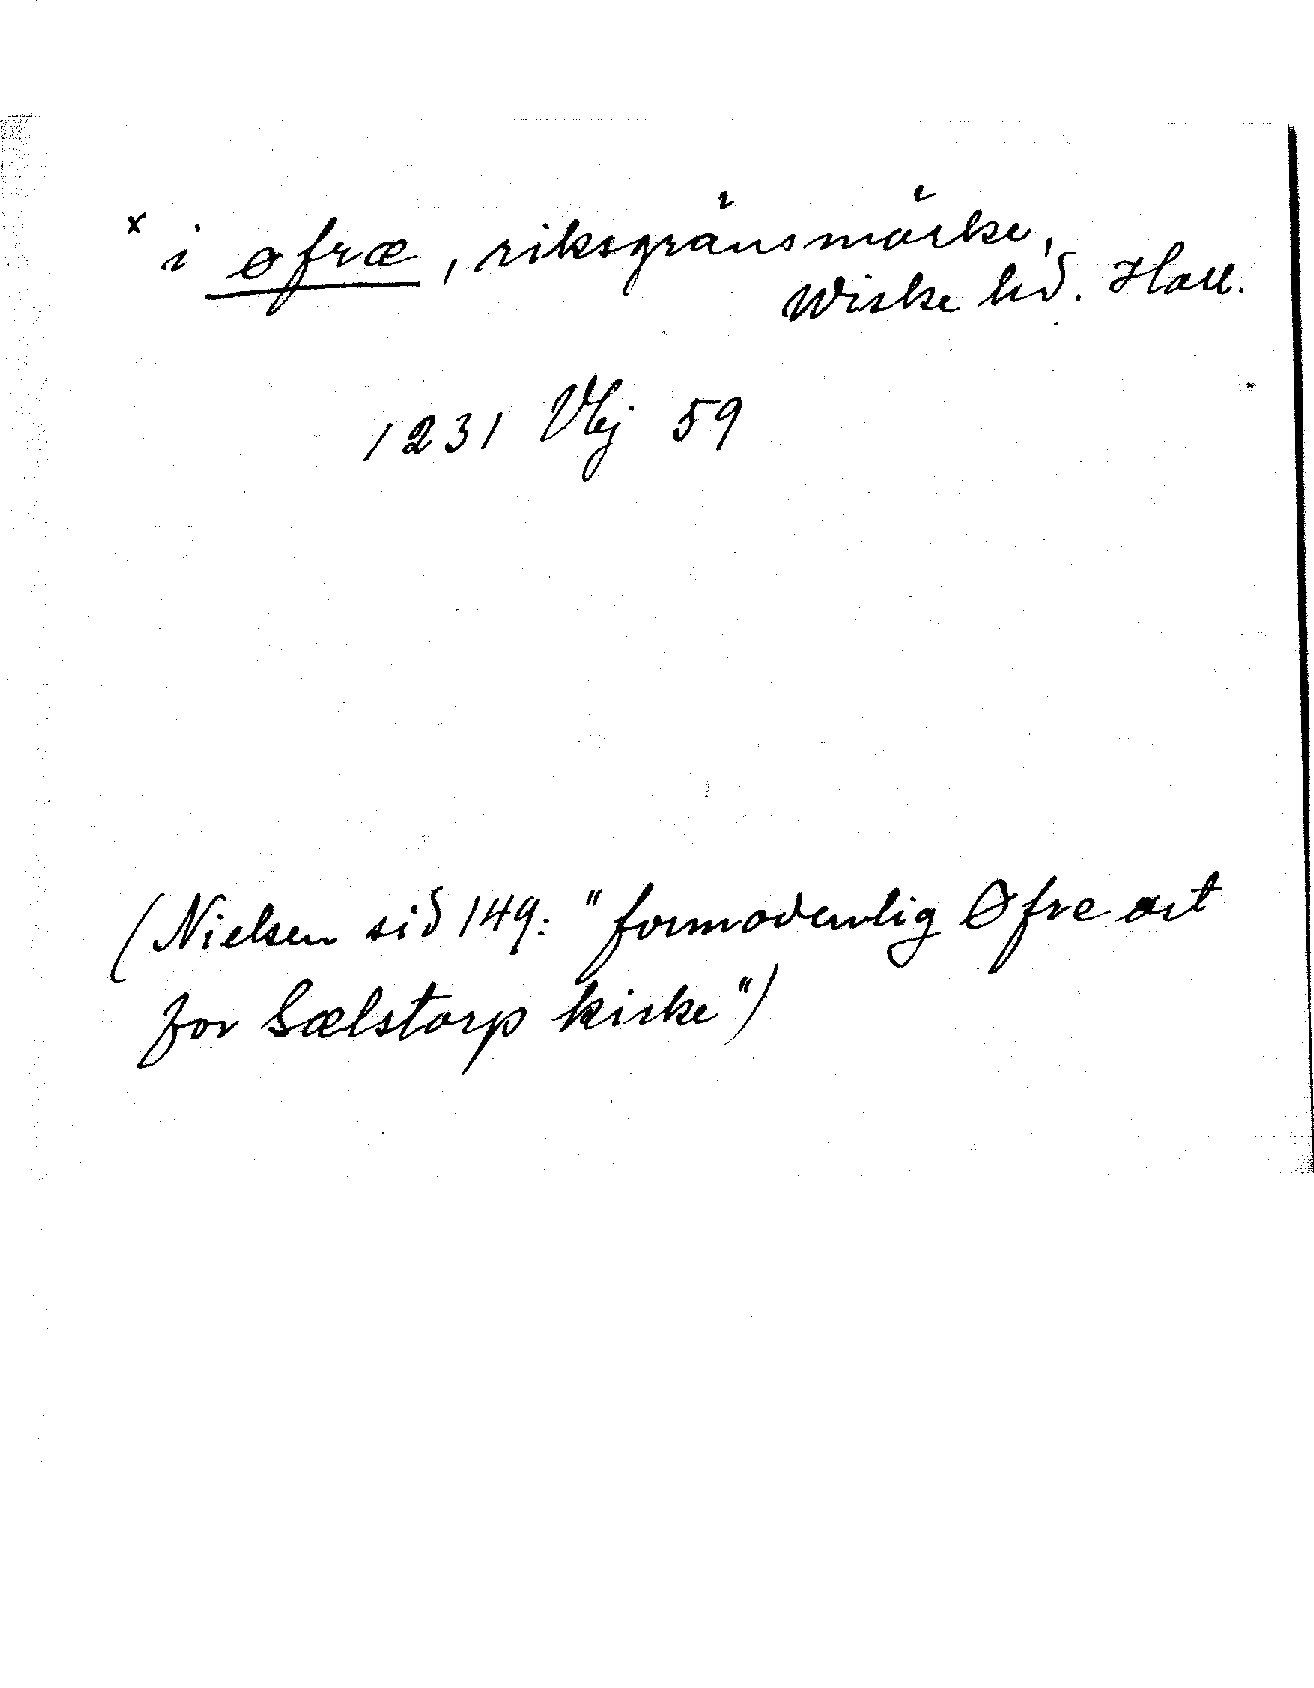 x i øfræ, riksgränsmärke,
Wiske hd. Hall.
1231 Vbj 59
(Nielsen sid 149: "formodenlig Øfre øst
for Sælstorp kirke")